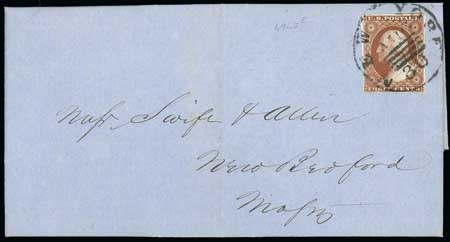 U.S. POSTAGE
NEW YORK
THREE CENTS
Messrs Swift & Allen
New Bedford
Mass